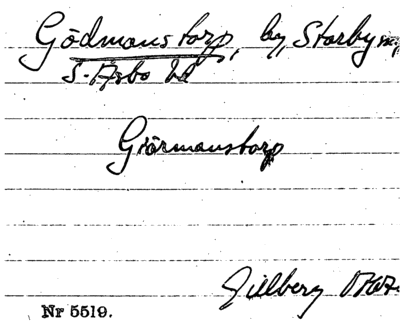 Gödmanstorp, by, Starby sn,
S. Åsbo hd
Giörmanstorp
Gillberg
Nr 5519.